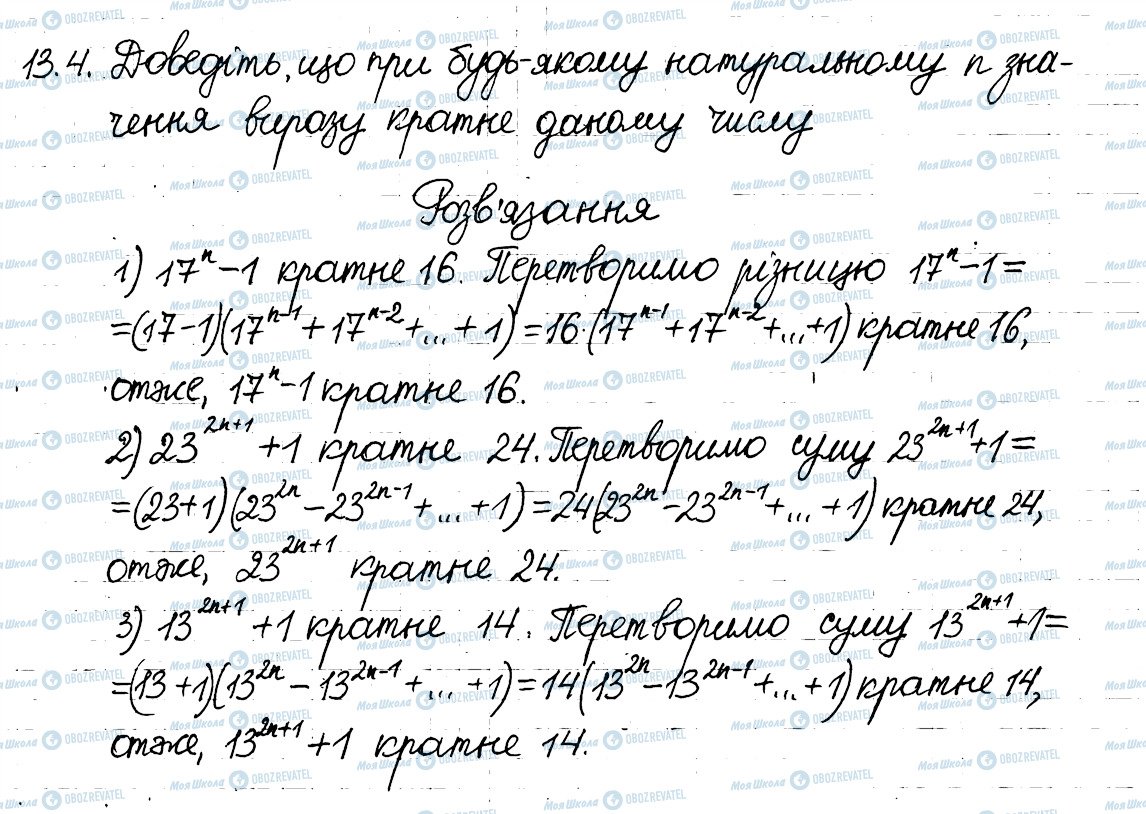 13.4. Доведіть, що при будь-якому натуральному n зна-
чення виразу кратне даному числу
Розв'язання
1) 17^n − 1 кратне 16. Перетворимо різницю 17^n − 1 =
= (17 − 1)(17^{n−1} + 17^{n−2} + ... + 1) = 16·(17^{n−1} + 17^{n−2} + ... + 1) кратне 16,
отже, 17^n − 1 кратне 16.
2) 23^{2n+1} + 1 кратне 24. Перетворимо суму 23^{2n+1} + 1 =
= (23 + 1)(23^{2n} − 23^{2n−1} + ... + 1) = 24(23^{2n} − 23^{2n−1} + ... + 1) кратне 24,
отже, 23^{2n+1} кратне 24.
3) 13^{2n+1} + 1 кратне 14. Перетворимо суму 13^{2n+1} + 1 =
= (13 + 1)(13^{2n} − 13^{2n−1} + ... + 1) = 14(13^{2n} − 13^{2n−1} + ... + 1) кратне 14,
отже, 13^{2n+1} + 1 кратне 14.